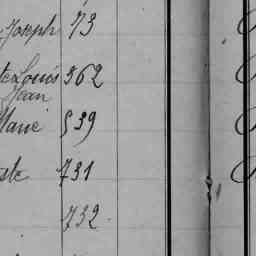 Joseph 73
te Louis 362
Jean
Marie 539
ste 731
732